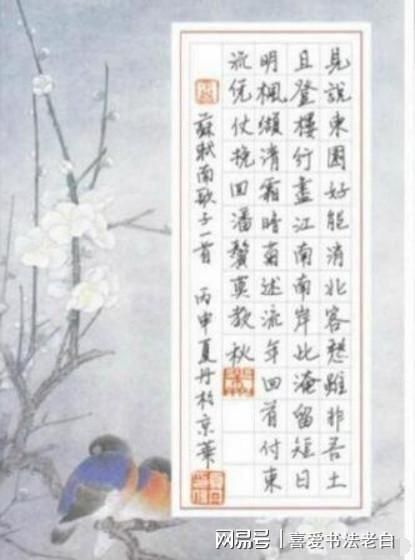 見說東園好能消北客愁雖非吾土
且登樓行盡江南南岸此淹留短日
明楓纈清霜暗菊毬流年回首付東
流凭仗挽回潘鬢莫教秋
蘇軾南歌子一首 丙申夏丹於京華
网易号 | 喜爱书法老白